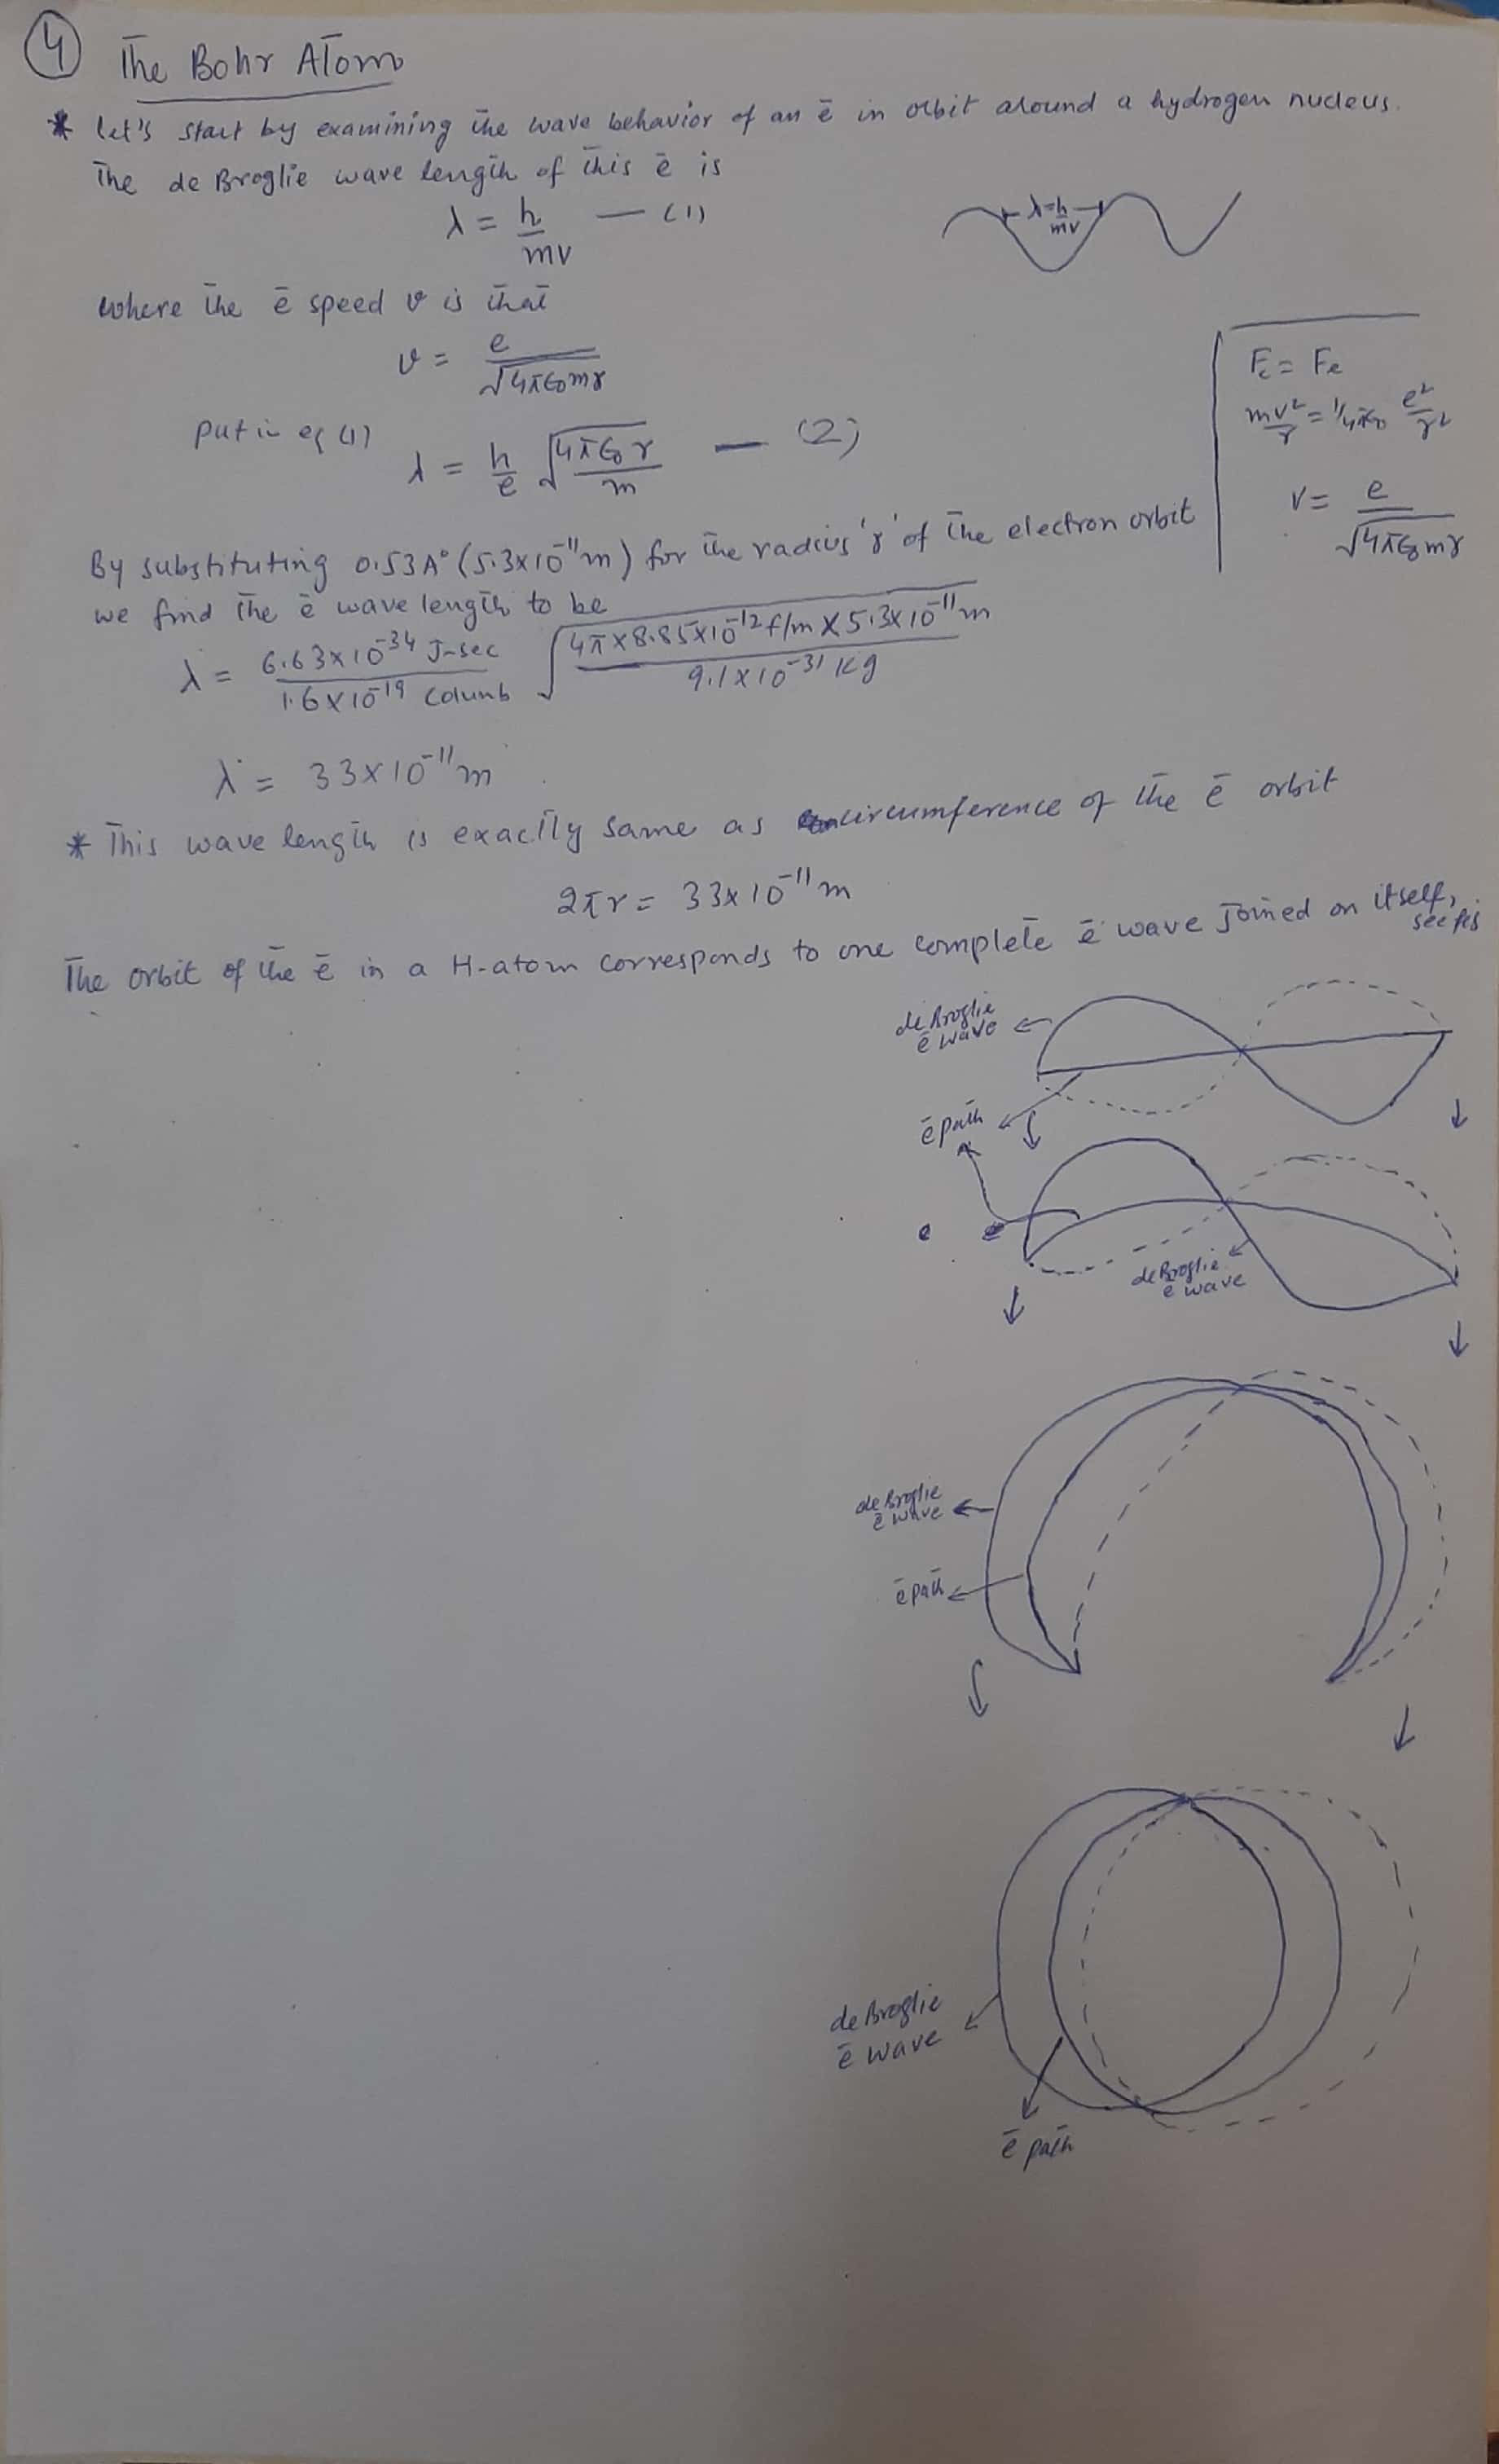 4 The Bohr Atom
* let's start by examining the wave behavior of an ē in orbit around a hydrogen nucleus.
The de Broglie wave length of this ē is
λ = h/mv — (1)
λ=h/mv
where the ē speed v is that
v = e/√4πε₀mr
Put in eq (1)
λ = h/e √4πε₀r/m — (2)
Fc = Fe
mv²/r = 1/4πε₀ e²/r²
v = e/√4πε₀mr
By substituting 0.53A° (5.3x10⁻¹¹m) for the radius 'r' of the electron orbit
we find the ē wave length to be
λ = 6.63x10⁻³⁴ J-sec/1.6x10⁻¹⁹ √4π x 8.85x10⁻¹² f/m x 5.3x10⁻¹¹m/9.1x10⁻³¹ Kg
λ = 33x10⁻¹¹m
* This wave length is exactly same as circumference of the ē orbit
2πr = 33x10⁻¹¹m
The orbit of the ē in a H-atom corresponds to one complete ē wave joined on itself,
see fig
de Broglie
ē wave
ē path
de Broglie
ē wave
de Broglie
ē wave
ē path
de Broglie
ē wave
ē path